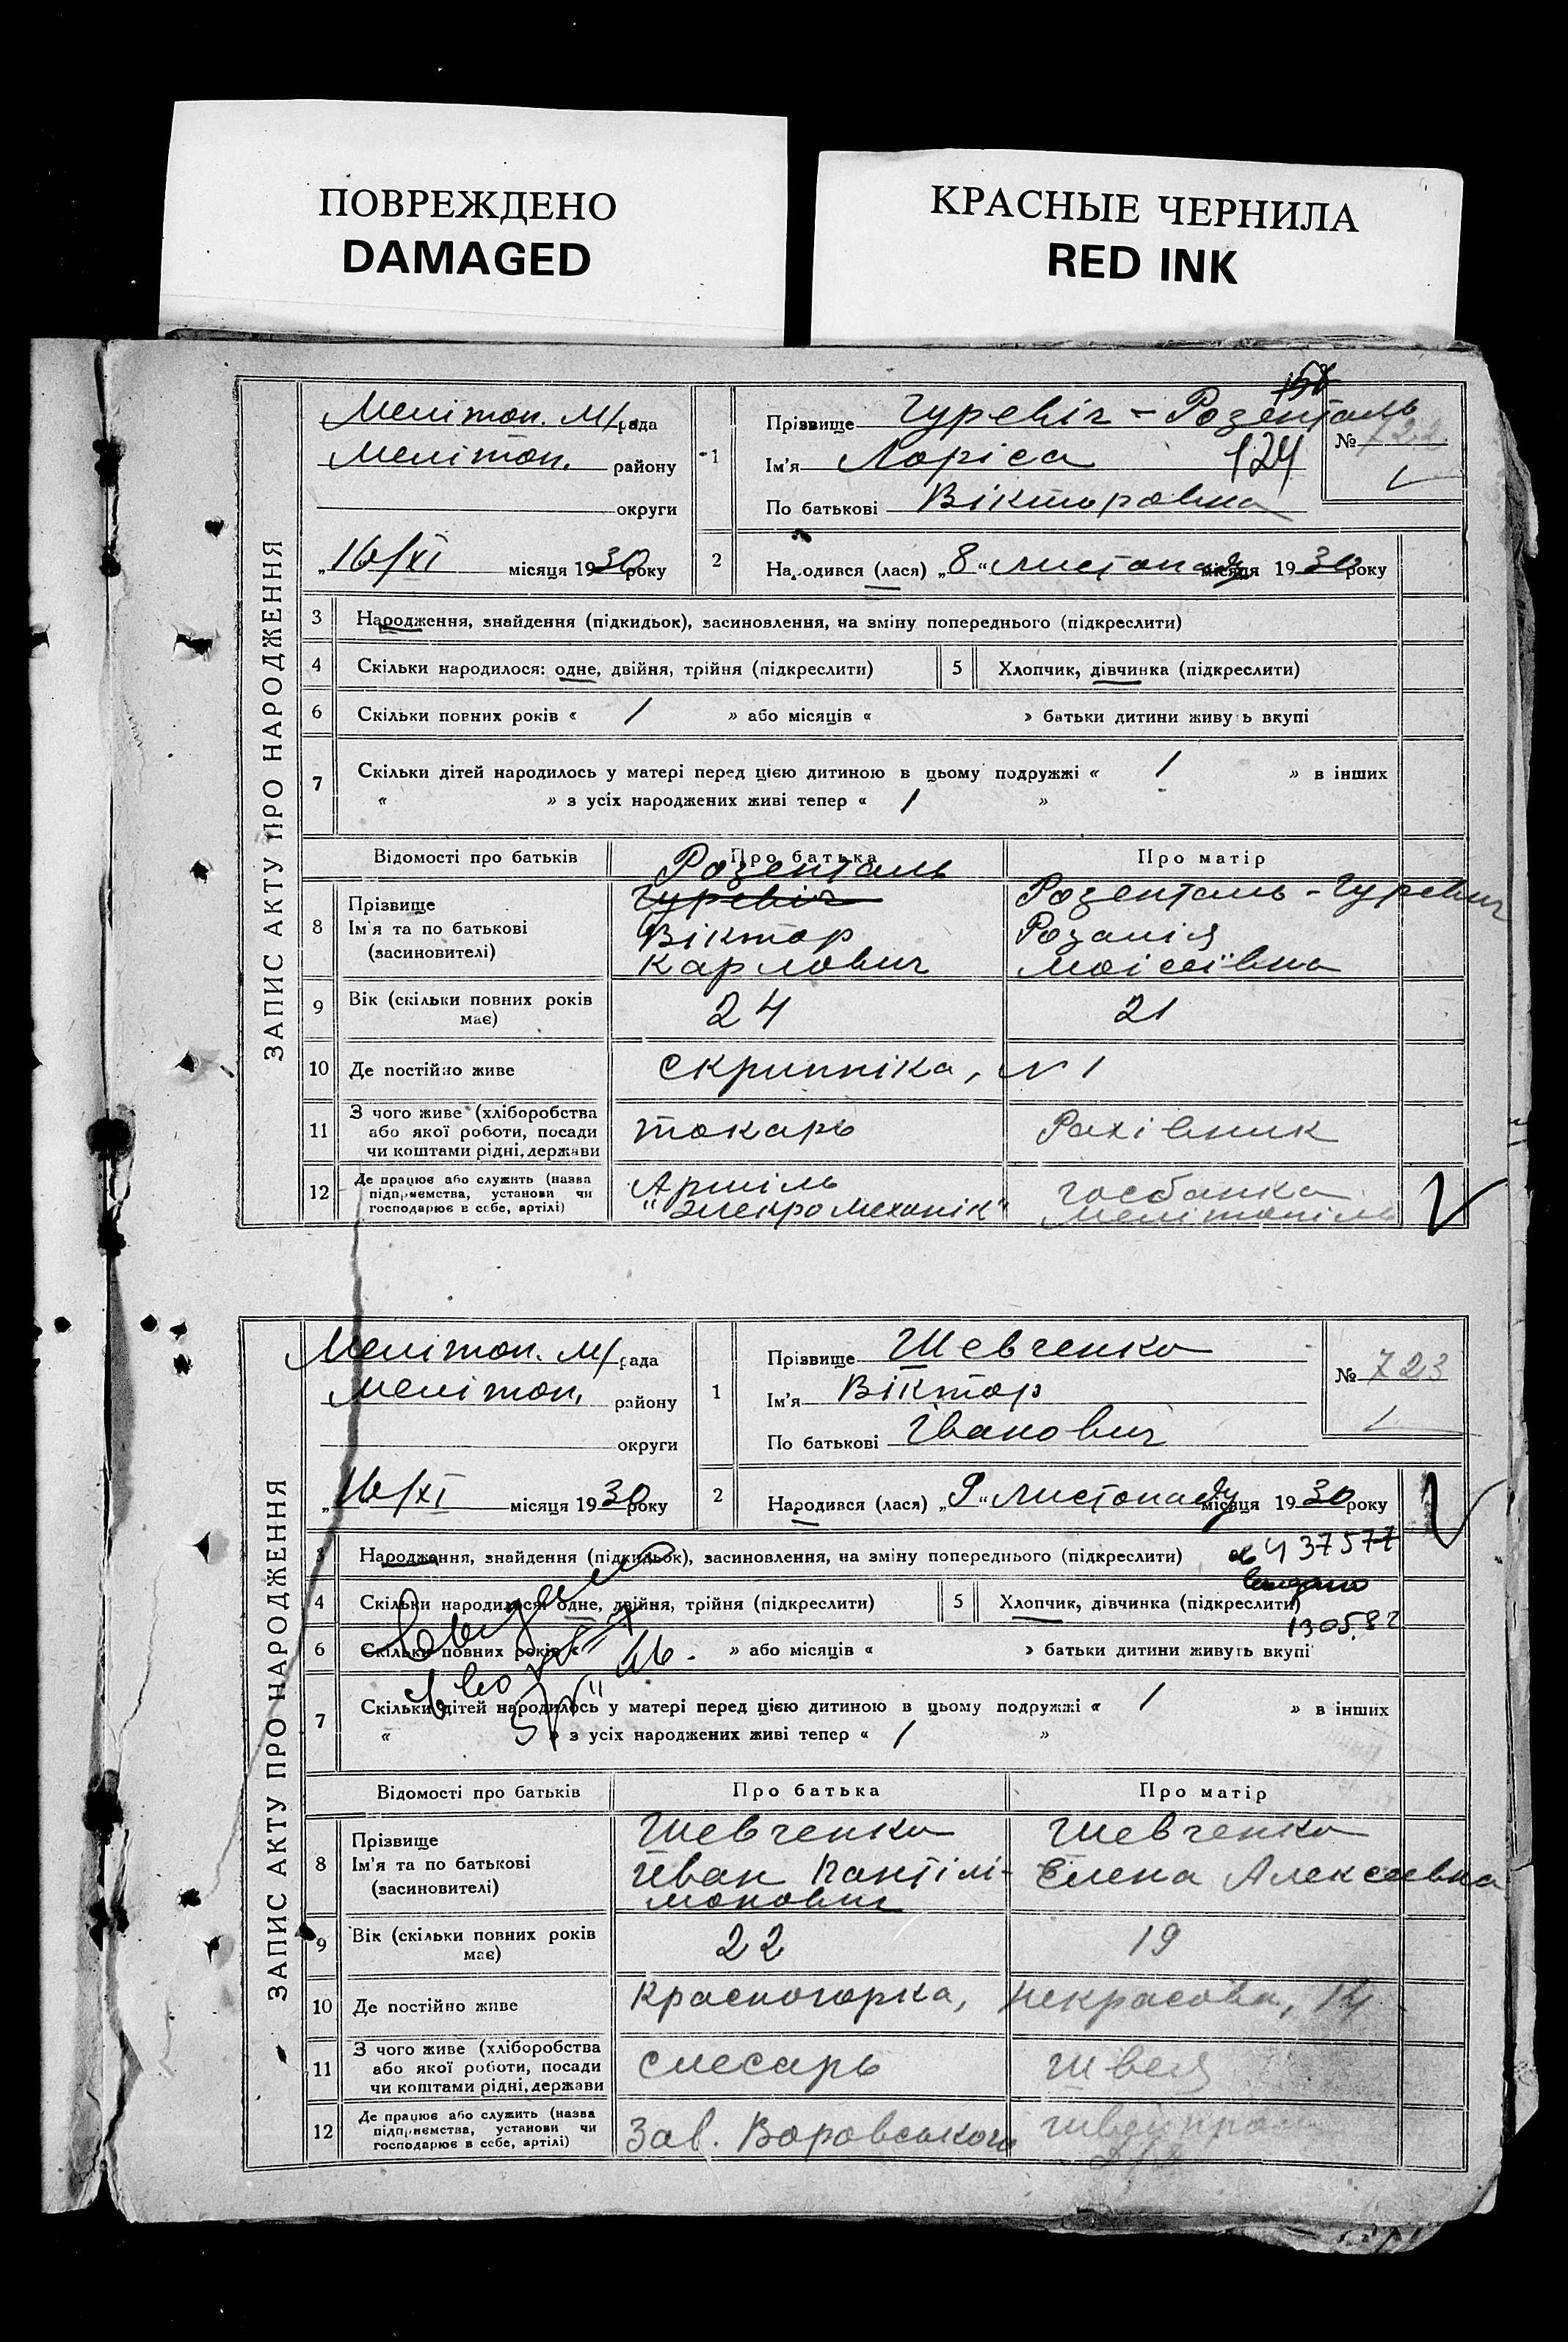 ПОВРЕЖДЕНО
DAMAGED
КРАСНЫЕ ЧЕРНИЛА
RED INK
ЗАПИС АКТУ ПРО НАРОДЖЕННЯ
Мелітоп. М/рада
Мелітоп. району
округи
„16/XI місяця 1930 року
1
Прізвище Гуревіч - Розенталь
Ім'я Лоріса 124
По батькові Вікторовна
№ 722
2 Народився (лася) „8" листопаду місяця 1930 року
3 Народження, знайдення (підкидьок), засиновлення, на зміну попереднього (підкреслити)
4 Скільки народилося: одне, двійня, трійня (підкреслити) 5 Хлопчик, дівчинка (підкреслити)
6 Скільки повних років « 1 » або місяців « » батьки дитини живуть вкупі
7 Скільки дітей народилось у матері перед цією дитиною в цьому подружжі « 1 » в інших
« » з усіх народжених живі тепер « 1 »
Відомості про батьків Про батька Про матір
Розенталь
8 Прізвище Гуревіч Розенталь-Гуревич
Ім'я та по батькові Віктор Розалія
(засиновителі) Карлович Моісеївна
9 Вік (скільки повних років 24 21
має)
10 Де постійно живе Скрипніка, N 1
З чого живе (хліборобства
11 або якої роботи, посади токарь Рахівник
чи коштами рідні, держави
Де працює або служить (назва Артіль Госбанка
12 підприємства, установи чи "Электромеханік" Мелітопіль
господарює в себе, артілі)
ЗАПИС АКТУ ПРО НАРОДЖЕННЯ
Мелітоп. М/рада
Мелітоп. району
округи
„16/XI місяця 1930 року
1
Прізвище Шевченко
Ім'я Віктор
По батькові Іванович
№ 723
2 Народився (лася) „9" листопаду місяця 1930 року
3 Народження, знайдення (підкидьок), засиновлення, на зміну попереднього (підкреслити)
437577
4 Скільки народилося: одне, двійня, трійня (підкреслити) 5 Хлопчик, дівчинка (підкреслити)
6 Скільки повних років « » або місяців « » батьки дитини живуть вкупі
7 Скільки дітей народилось у матері перед цією дитиною в цьому подружжі « 1 » в інших
« » з усіх народжених живі тепер « 1 »
Відомості про батьків Про батька Про матір
8 Прізвище Шевченко Шевченко
Ім'я та по батькові Иван Пантілі- Елена Алексеевна
(засиновителі) монович
9 Вік (скільки повних років 22 19
має)
10 Де постійно живе Красногорка, Некрасова, 14
З чого живе (хліборобства
11 або якої роботи, посади слесарь Швея
чи коштами рідні, держави
Де працює або служить (назва
12 підприємства, установи чи Зав. Воровського
господарює в себе, артілі)